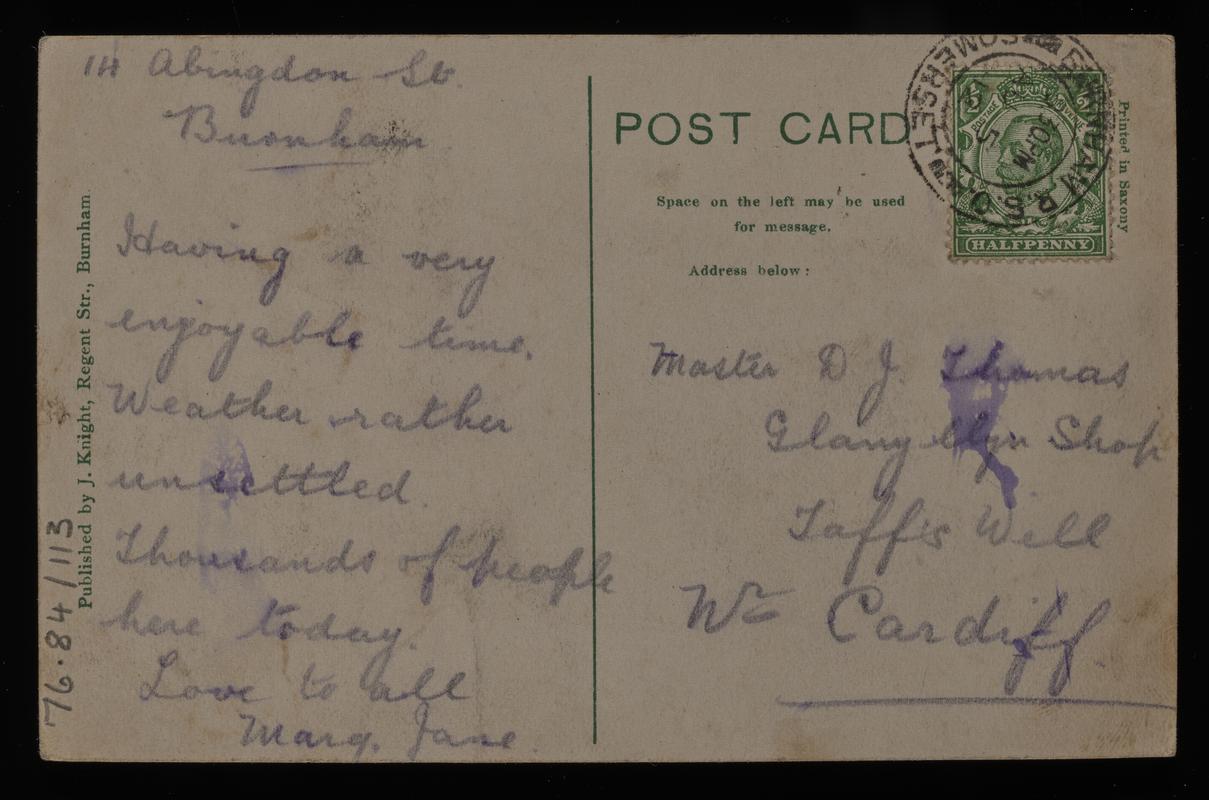 14 Abingdon St.
Burnham
Having a very
enjoyable time.
Weather rather
unsettled.
Thousands of people
here today.
Love to all
Marg. Jane.
Published by J. Knight, Regent Str., Burnham.
76.84/113
POST CARD
Space on the left may be used
for message.
Address below:
Printed in Saxony
BURNHAM R.S.O.
SOMERSET
30PM
HALFPENNY
Master D J. Thomas
Glanyllyn Shop
Taff's Well
Nr Cardiff.